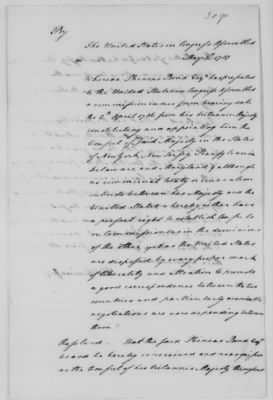 By
The United States in Congress Assembled
May 3. 1787
Whereas Phineas Bond Esqr. has presented
to the United States in Congress Assembled
a commission in due form bearing date
the day of April 1786 from his Britannic Majesty
constituting and appointing him the
Consul of said Majesty in the States
of New York New Jersey Pensylvania
Delaware and Maryland, & although
no commercial treaty or convention
subsists between his Majesty and the
United States whereby either have
a perfect right to establish Consuls
or Commissaries in the dominions
of the other, yet as the United States
are disposed by every proper mark
of liberality and attention to promote
a good correspondence between the two
countries and particularly as amicable
negotiations are now depending between
them
Resolved That the said Phineas Bond Esqr
be and he hereby is received and recognised
as the Consul of his Britannic Majesty throughout